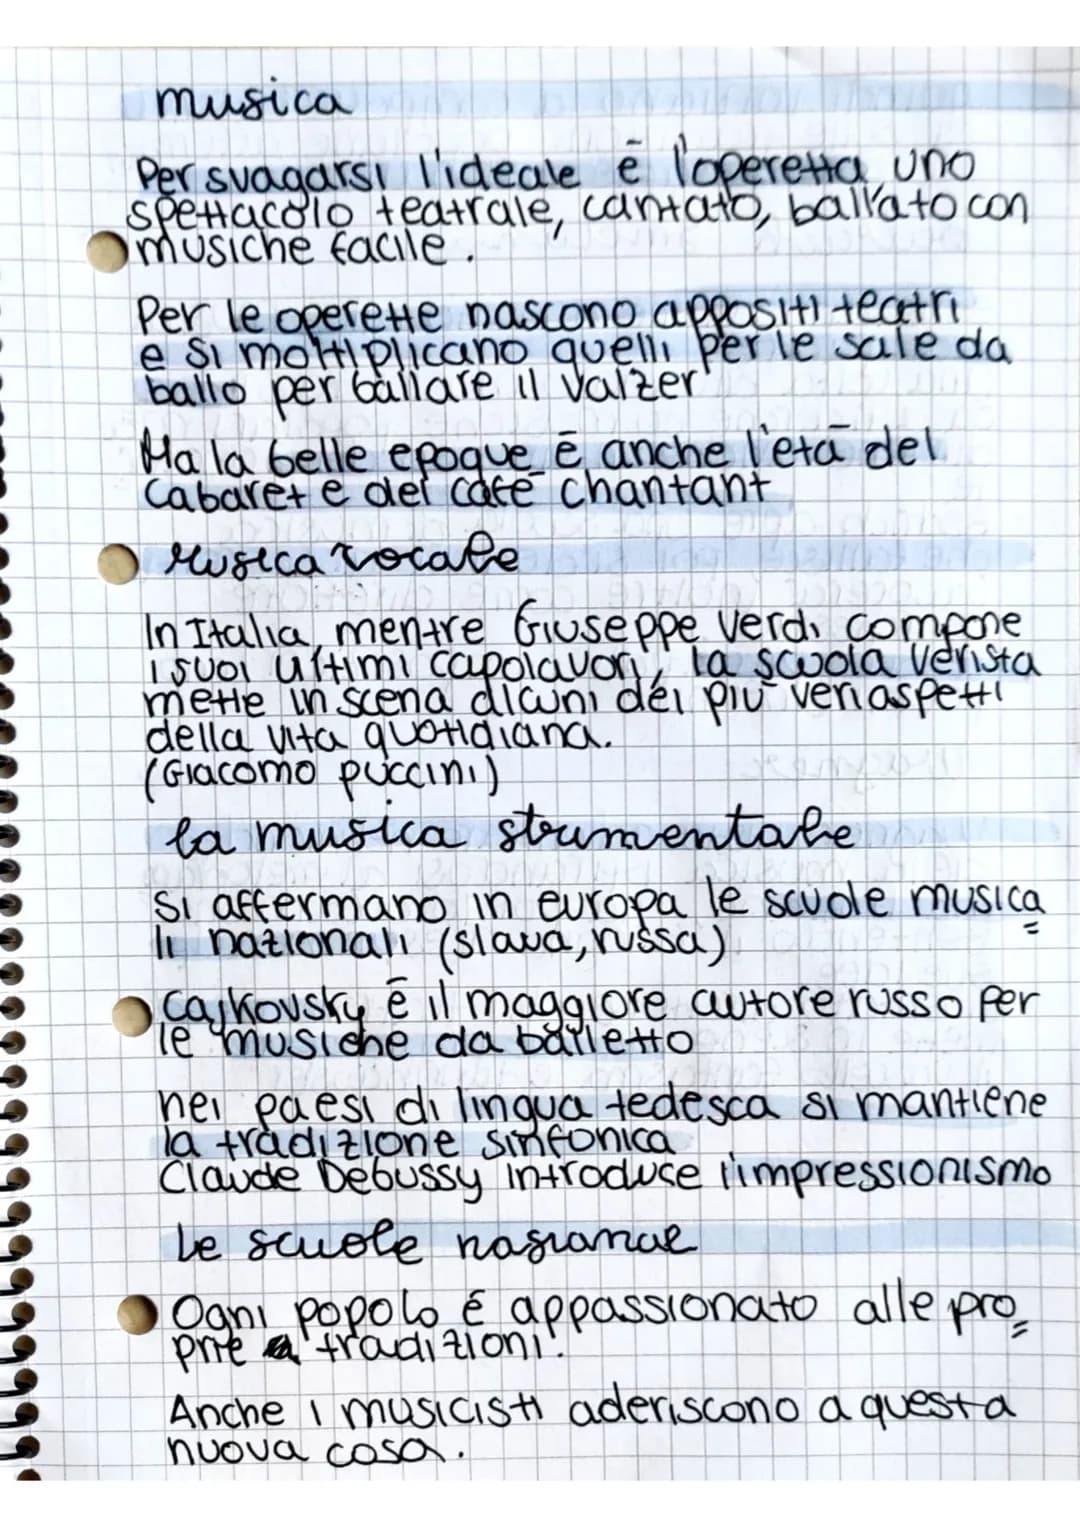 musica
Per svagarsi l'ideale è l'operetta uno
spettacolo teatrale, cantato, ballato con
musiche facile.
Per le operette nascono appositi teatri
e si moltiplicano quelli per le sale da
ballo per ballare il valzer
Ma la belle epoque è anche l'età del
cabaret e del cafè chantant
Musica vocale
In Italia, mentre Giuseppe Verdi compone
i suoi ultimi capolavori, la scuola verista
mette in scena alcuni dei più veri aspetti
della vita quotidiana.
(Giacomo puccini)
la musica strumentale
Si affermano in europa le scuole musica
li nazionali (slava, russa)
Caikovsky è il maggiore autore russo per
le musiche da balletto
nei paesi di lingua tedesca si mantiene
la tradizione sinfonica
Claude Debussy introduce l'impressionismo
Le scuole
Ogni popolo é appassionato alle pro
prie tradizioni.
Anche i musicisti aderiscono a questa
nuova cosa.